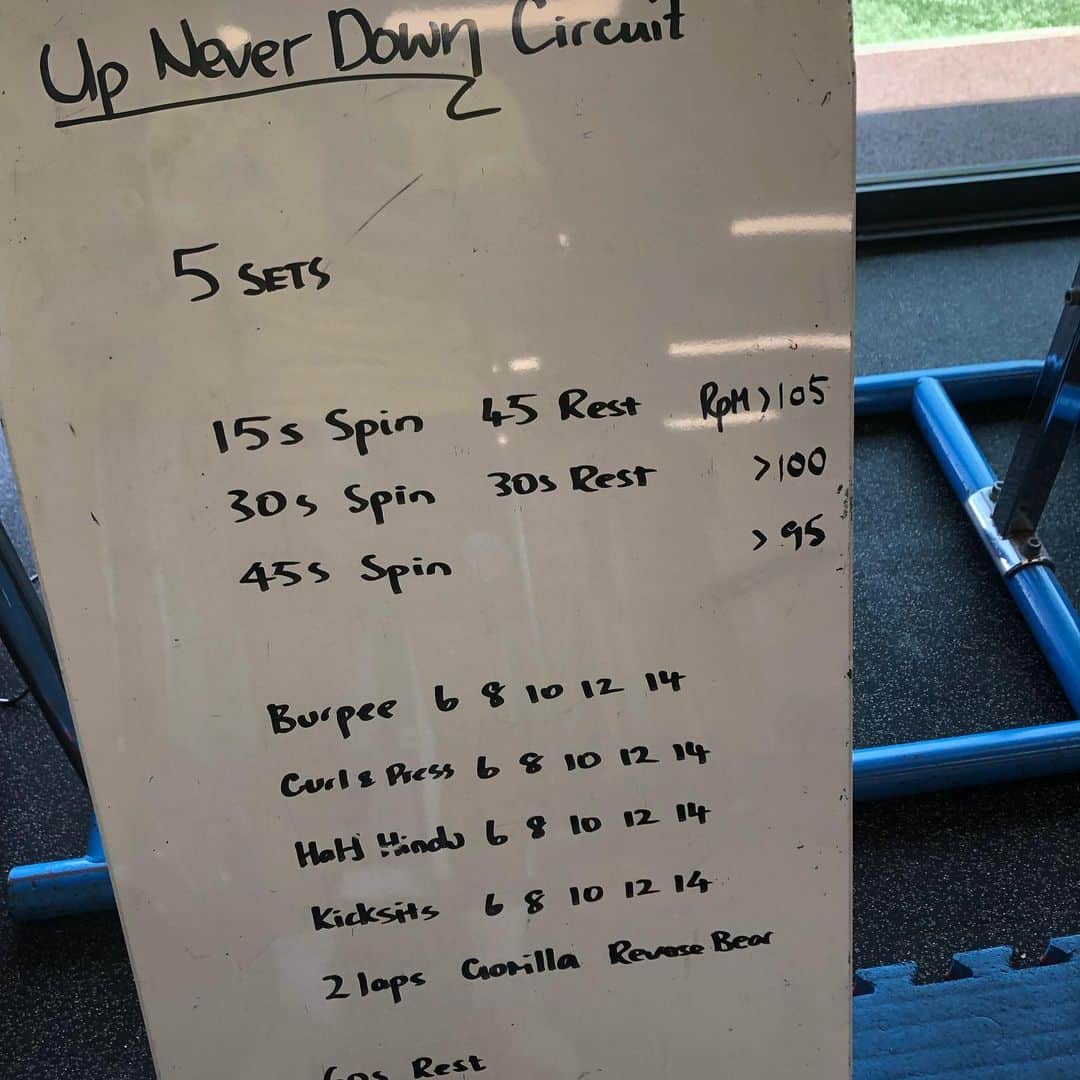 Up Never Down Circuit
5 SETS
15s Spin 45 Rest RpM >105
30s Spin 30s Rest >100
45s Spin >95
Burpee 6 8 10 12 14
Curl & Press 6 8 10 12 14
Half Hindu 6 8 10 12 14
Kicksits 6 8 10 12 14
2 laps Gorilla Reverse Bear
60s Rest